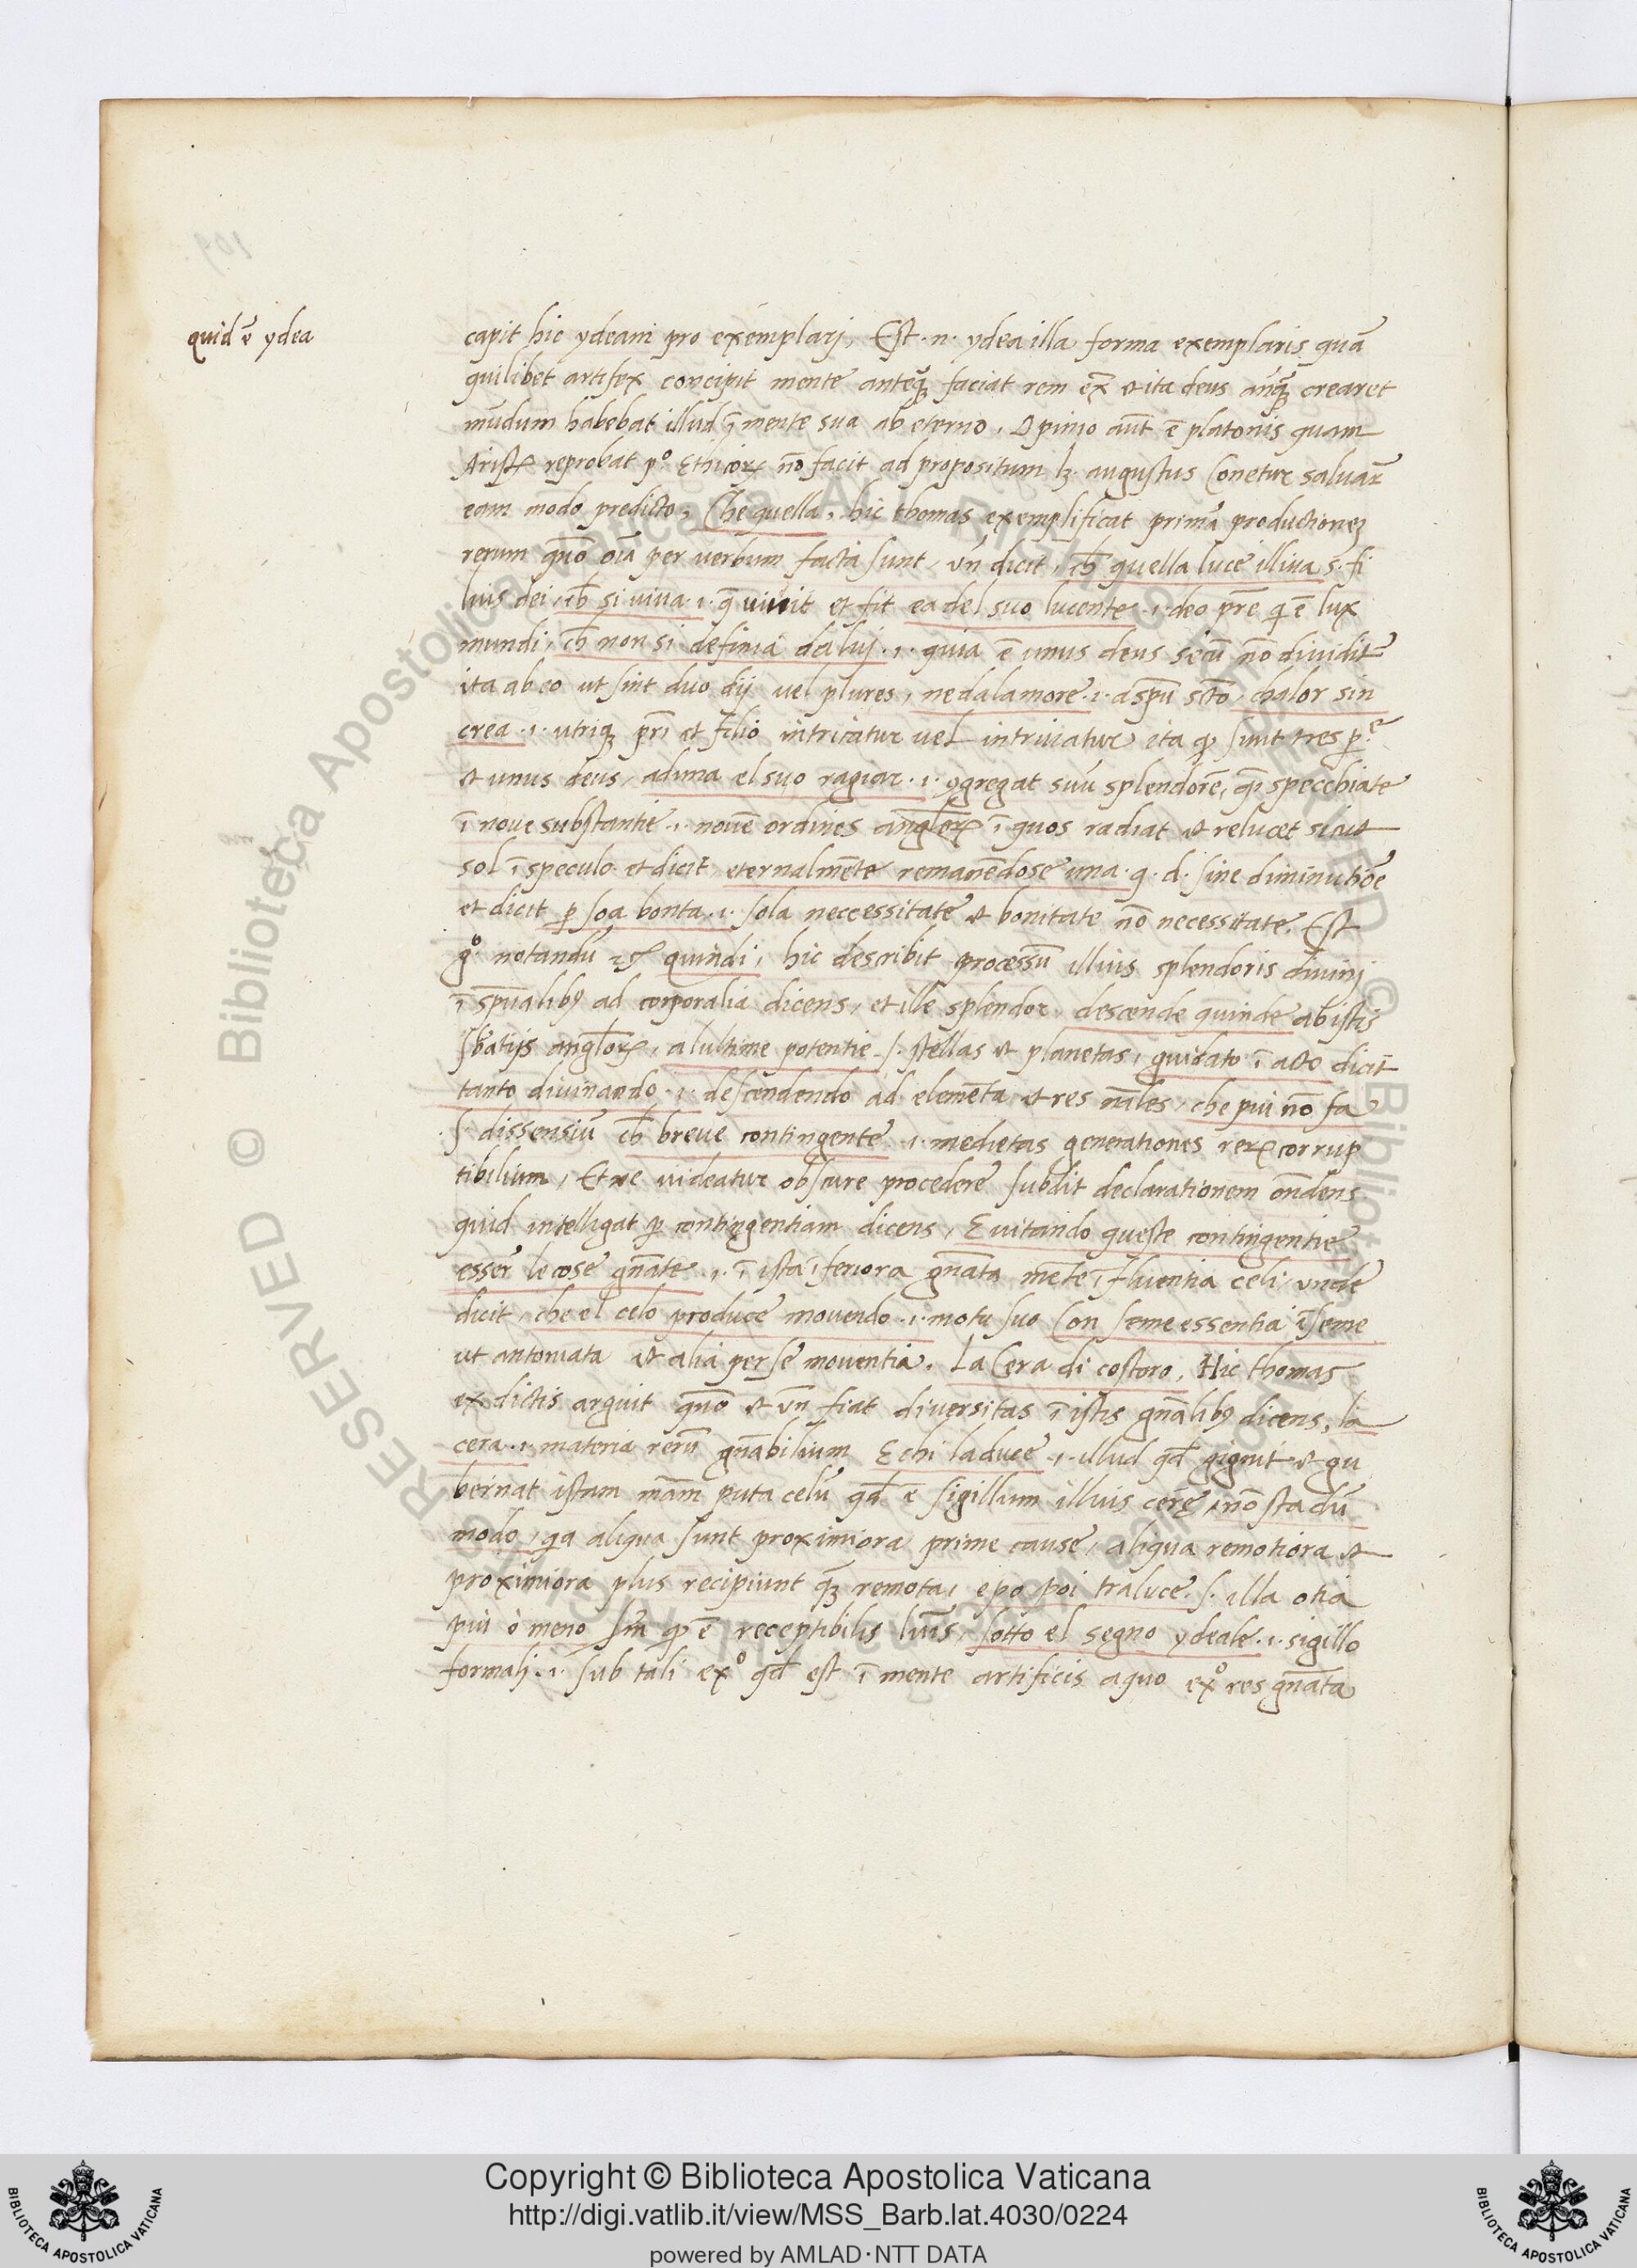 quid ē ydea
capit hic ydeam pro exemplarj, Est .n. ydea illa forma exemplaris quā
quilibet artifex concipit mente anteq̄ꝫ faciat rem ex̄ & ita deus anq̄ꝫ crearet
mūdum habebat illud ī mente sua ab eterno. Opinio aūt ē platonis quam
Aristꝭ reprobat pº Ethicoꝝ nō facit ad propositum lꝫ augustus Conetur saluar̄
eam modo predicto, Che quella, hic thomas exemplificat primā productioneꝫ
rerum quō oīa per uerbum facta sunt, vn̄ dicit, ch̄ quella luce illiua s. fi
lius dei, ch̄ si uiua .i. q̄ uiuit et fit ea del suo lucente .i. deo pr̄e q̇ ē lux
mundi, ch̄ non si definia da luj .i. quia ē unus deus secū nō diuidit̄
ita ab eo ut sint duo dij uel plures, ne dal amore .i. a spū scto, chalor sin
crea .i. utriqꝫ pr̄i et filio intricatur uel intriuiatur ita ꝙ sunt tres p.ᵉ
& unus deus, aduna el suo ragiar .i. ꝯgregat suū splendorē, q̄i specchiate
ī noue substantie .i. nouē ordines angloꝝ ī quos radiat & relucet sicut
sol ī speculo et dicit eternalmēte remanēdose una .q.d. sine diminutiōe
et dicit p soa bonta .i. sola neccessitate & bonitate nō necessitate. Est
gº notandū quindi, hic describit processū illius splendoris diuinj
ī spūalibꝯ ad corporalia dicens, et ille splendor, descende quinde ab istis
sbātijs angloꝝ, al ultime potentie .s. stellas & planetas, guidato ī acto dicit
tanto diuinando .i. descendendo ad elemēta & res nāles, che pui nō fa
.s. dissensiū ch̄ breue contingente .i. medietas generationes reꝝ corrup
tibilium, Et ne uideatur obscure procedere subdit declarationem on̄dens
quid intelligat ꝑ contingentiam dicens, Euitando queste contingentie
esser le cose gn̄ate .i. ī ista īferiora gn̄ata mēte īfluentia celi, unde
dicit, che el celo produce mouendo .i. motu suo Con seme essentia ī seme
ut antomata & alia per se mouentia. La Cera di costoro, Hic thomas
ex dictis arguit quō & vn̄ fiat diuersitas ī istis gn̄alibꝯ dicens, la
cera .i. materia rerū gn̄abilium E chi la duce .i. illud qd̄ gignit & gu
bernat istam mām puta celū qd̄ ē sigillum illius cerę, nō sta dū
modo, q̇a aliqua sunt proximiora prime cause, aliqua remotiora &
proximiora plus recipiunt q̄ꝫ remota, e po poi traluce .s. illa otia
piu ò meno sm̄ ꝙ ē receptibilis luīs, sotto el segno ydeale .i. sigillo
formalj .i. sub tali exº qd̄ est ī mente artificis a quo exº res gn̄ata
Copyright © Biblioteca Apostolica Vaticana
http://digi.vatlib.it/view/MSS_Barb.lat.4030/0224
powered by AMLAD·NTT DATA
BIBLIOTECA APOSTOLICA VATICANA
BIBLIOTECA APOSTOLICA VATICANA